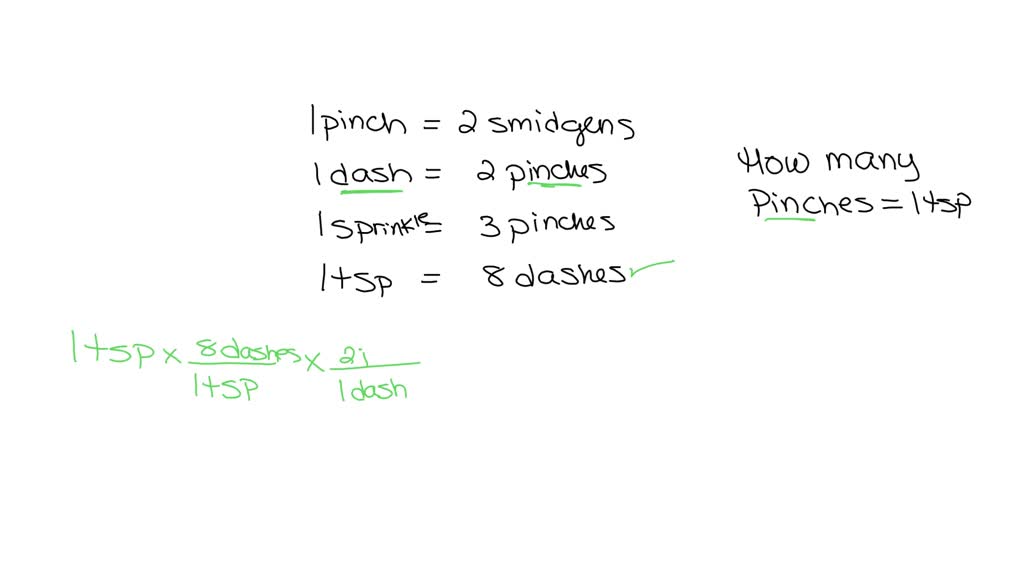 1 pinch = 2 smidgens
1 dash = 2 pinches
1 sprinkle = 3 pinches
1 tsp = 8 dashes ✓
How many
Pinches = 1 tsp
1 tsp x 8 dashes / 1 tsp x 2i / 1 dash